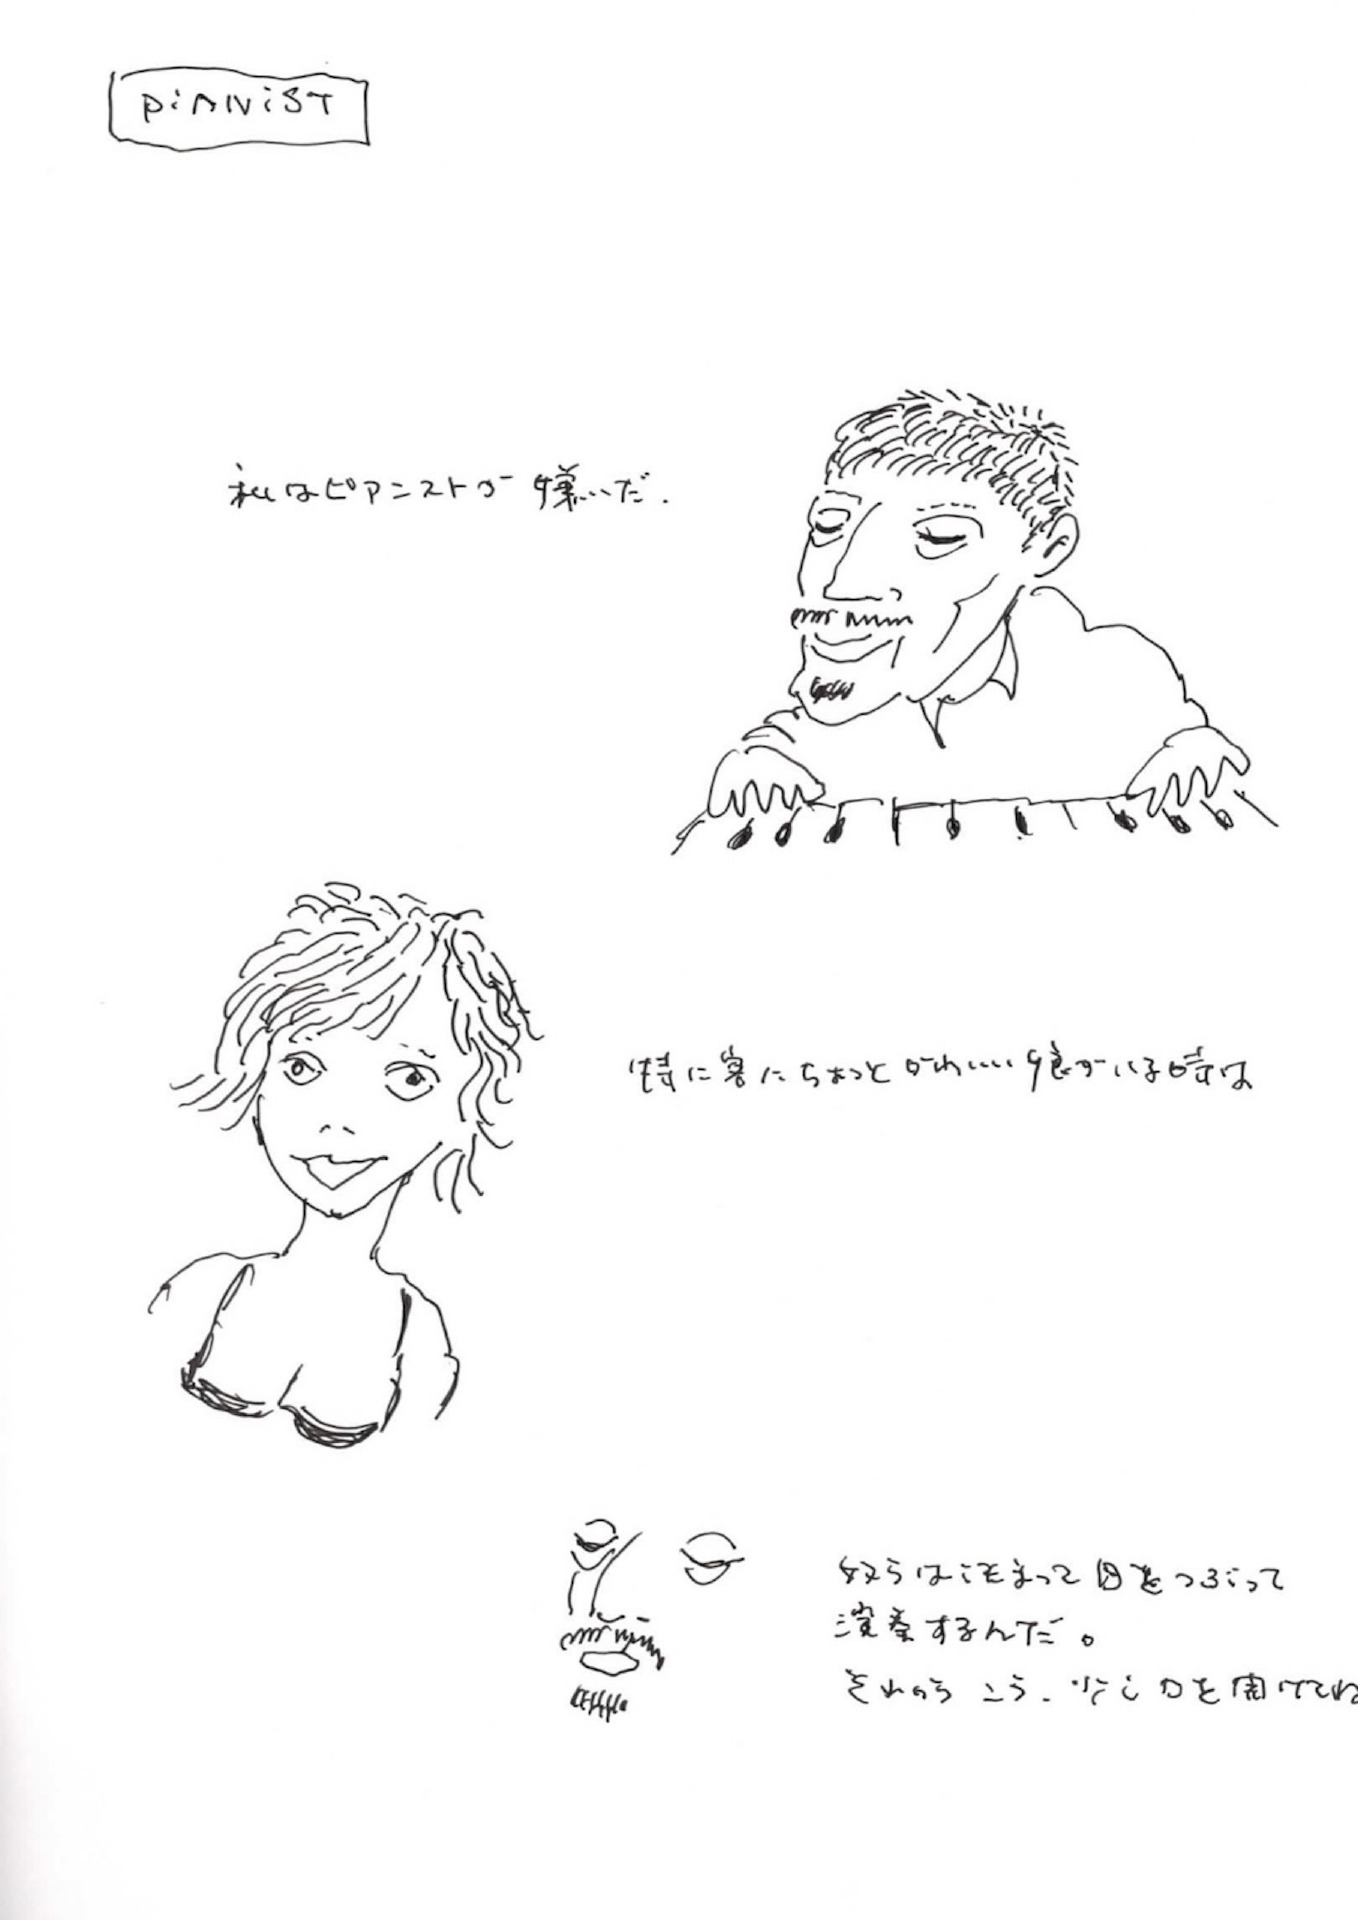 PiANiST
私はピアニストが嫌いだ.
特に客にちょっとかわいい娘がいる時は
奴らはこぞって目をつぶって
演奏するんだ。
それから こう、少し口を開けてね